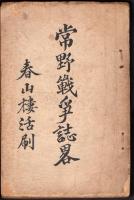 常野戰爭誌畧
春山樓活刷